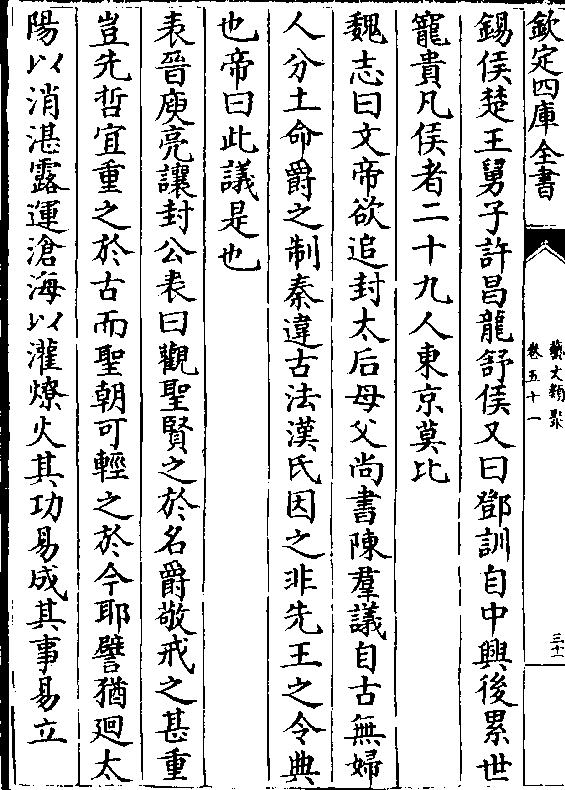 欽定四庫全書
藝文類聚
卷五十一
三十一
錫侯楚王舅子許昌龍舒侯又曰鄧訓自中興後累世
寵貴凡侯者二十九人東京莫比
魏志曰文帝欲追封太后母父尚書陳羣議自古無婦
人分土命爵之制秦違古法漢氏因之非先王之令典
也帝曰此議是也
表晉庾亮讓封公表曰觀聖賢之於名爵敬戒之甚重
豈先哲宜重之於古而聖朝可輕之於今耶譬猶迴太
陽以消湛露運滄海以灌燎火其功易成其事易立